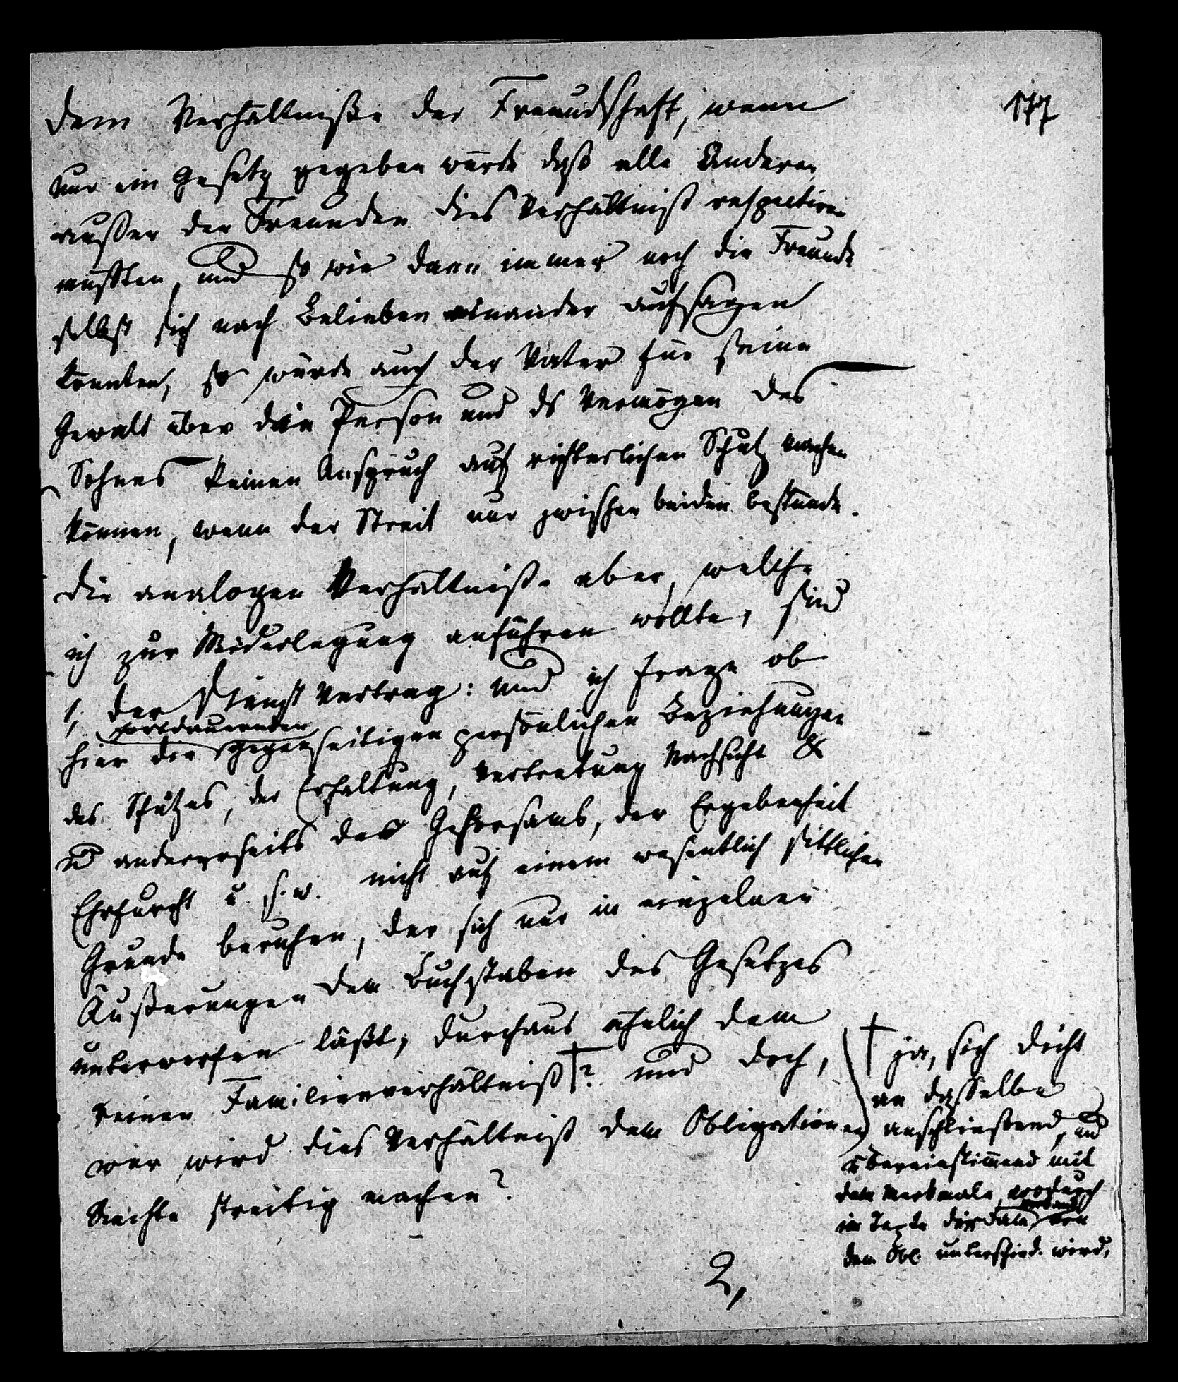 177
dem Verhältniße der Freundschaft, wenn
nur ein Gesetz gegeben würde daß alle Anderen
außer den Freunden dies Verhältniß respectiren
müßten, und so wie dann immer noch die Freunde
selbst sich nach Belieben einander aufsagen
könnten, so würde auch der Vater für seine
Gewalt über die Person und ds Vermögen des
Sohnes keinen Anspruch auf richterlichen Schutz machen
können, wenn der Streit nur zwischen beiden bestünde.
Die analogen Verhältniße aber, welche
ich zur Widerlegung anführen wollte, sind
1, der Dienst Vertrag: und ich frage ob
fortdauernden
hier die gegenseitigen persönlichen Beziehungen
des Schutzes, der Erhaltung, Vertretung Nachsicht &
u andererseits des Gehorsams, der Ergebenheit
Ehrfurcht u. s. w. nicht auf einem wesentlich sittlichen
Grunde beruhen, der sich nur in einzelnen
Äußerungen dem Buchstaben des Gesetzes
unterwerfen läßt, durchaus ähnlich dem
reinen Familienverhältniß†? und doch,
wer wird dies Verhältniß dem Obligationen
Rechte streitig machen?
† ja, sich dicht
an dasselbe
anschließend, und
übereinstimmend mit
dem Merkmale, wodurch
im Texte von
dem Obl. unterschied. wird.
2,